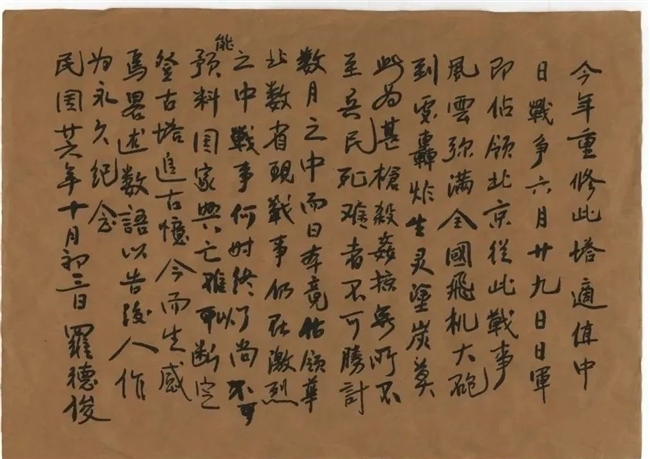 今年重修此塔適值中
日戰争六月廿九日日軍
即佔領北京從此戰事
風雲弥满全國飛机大砲
到處轟炸生灵塗炭莫
此为甚槍殺姦掠無所不
至兵民死难者不可勝計
数月之中而日本竟佔領華
北数省現戰事仍在激烈
之中戰事何时终了尚不可
能預料国家興亡难以断定
登古塔追古憶今而生感
焉畧述数語以告後人作
为永久纪念
民国廿六年十月初三日 羅德俊